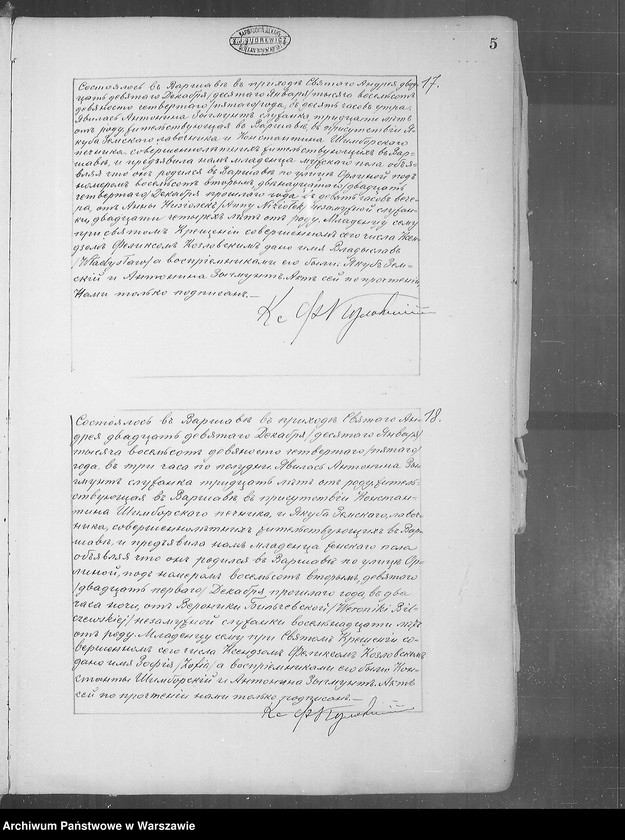 5
17.
Состоялось въ Варшавѣ въ приходѣ Святаго Андрея двад-
цать девятаго Декабря /десятаго Января/ тысяча восемьсотъ
девяносто четвертаго /пятаго/ года, въ десять часовъ утра.
Явилась Антонина Зыгмунтъ служанка, тридцати лѣтъ
отъ роду, жительствующая въ Варшавѣ, въ присутствіи Я-
куба Земскаго, лавочника и Константина Шимборскаго
печника совершеннолѣтнихъ жительствующихъ въ Вар-
шавѣ, и предъявила намъ младенца мужскаго пола объя-
вляя что онъ родился въ Варшавѣ по улицѣ Орлиной подъ
номеромъ восемьсотъ вторымъ, двѣнадцатаго /двадцать
четвертаго/ Декабря прошлаго года въ девять часовъ вече-
ра, отъ Анны /Anny Nizołek/ незамужной служан-
ки, двадцати четырехъ лѣтъ отъ роду. Младенцу сему
при святомъ Крещеніи совершенномъ сего числа Ксен-
дзомъ Феликсомъ Козловскимъ дано имя Владыславъ
/Władysław/ а воспріемниками его были Якубъ Зем-
скій и Антонина Зыгмунтъ. Актъ сей по прочтеніи
Нами только подписанъ.—
Кс Ф
18.
Состоялось въ Варшавѣ въ приходѣ Святаго Ан-
дрея двадцать девятаго Декабря /десятаго Января/
тысяча восемьсотъ девяносто четвертаго /пятаго/
года, въ три часа по полудни. Явилась Антонина Зы-
гмунтъ служанка тридцать лѣтъ отъ роду, житель-
ствующая въ Варшавѣ въ присутствіи Констан-
тина Шимборскаго печника, и Якуба Земскаго, лавоч-
ника, совершеннолѣтнихъ жительствующихъ въ Вар-
шавѣ, и предъявила намъ младенца женскаго пола
объявляя что онъ родился въ Варшавѣ по улицѣ Ор-
линой, подъ номеромъ восемьсотъ вторымъ, девятаго
/двадцать перваго/ Декабря прошлаго года, въ два
часа ночи, отъ Вероники Бильчевской /Weroniki Bil-
czewskiej/ незамужной служанки восемнадцати лѣтъ
отъ роду. Младенцу сему при Святомъ Крещеніи со-
вершенномъ сего числа Ксендзомъ Феликсомъ Козловскимъ
дано имя Зофія /Zofia/ а воспріемниками его были Кон-
стантый Шимборскій и Антонина Зыгмунтъ. Актъ
сей по прочтеніи нами только подписанъ.—
Кс Ф
Archiwum Państwowe w Warszawie